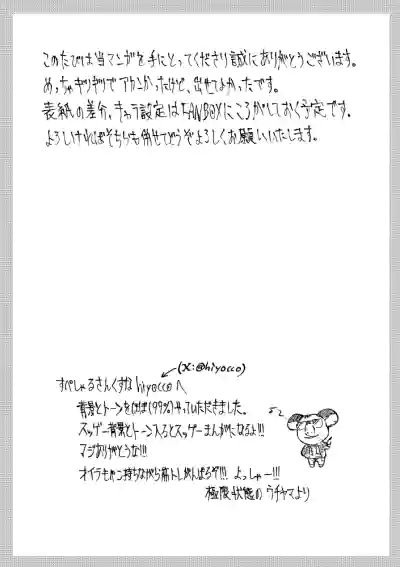 このたびは当マンガを手にとってくださり誠にありがとうございます。
めっちゃギリギリでアカンかったけど、出せてよかったです。
表紙の差分、キャラ設定はFANBOXにころがしておく予定です。
よろしければそちらも併せてどうぞよろしくお願いいたします。
(X:@hiyocco)
すぺしゃるさんくすな hiyocco へ
背景とトーンをほぼ(99%)やっていただきました。
スッゲー背景とトーン入るとスッゲーまんがになるよ!!!
マジありがとうな!!!
オイラもペン持ちながら筋トレがんばるぞ!!! よっしゃー!!!
極限状態の ウチヤマより